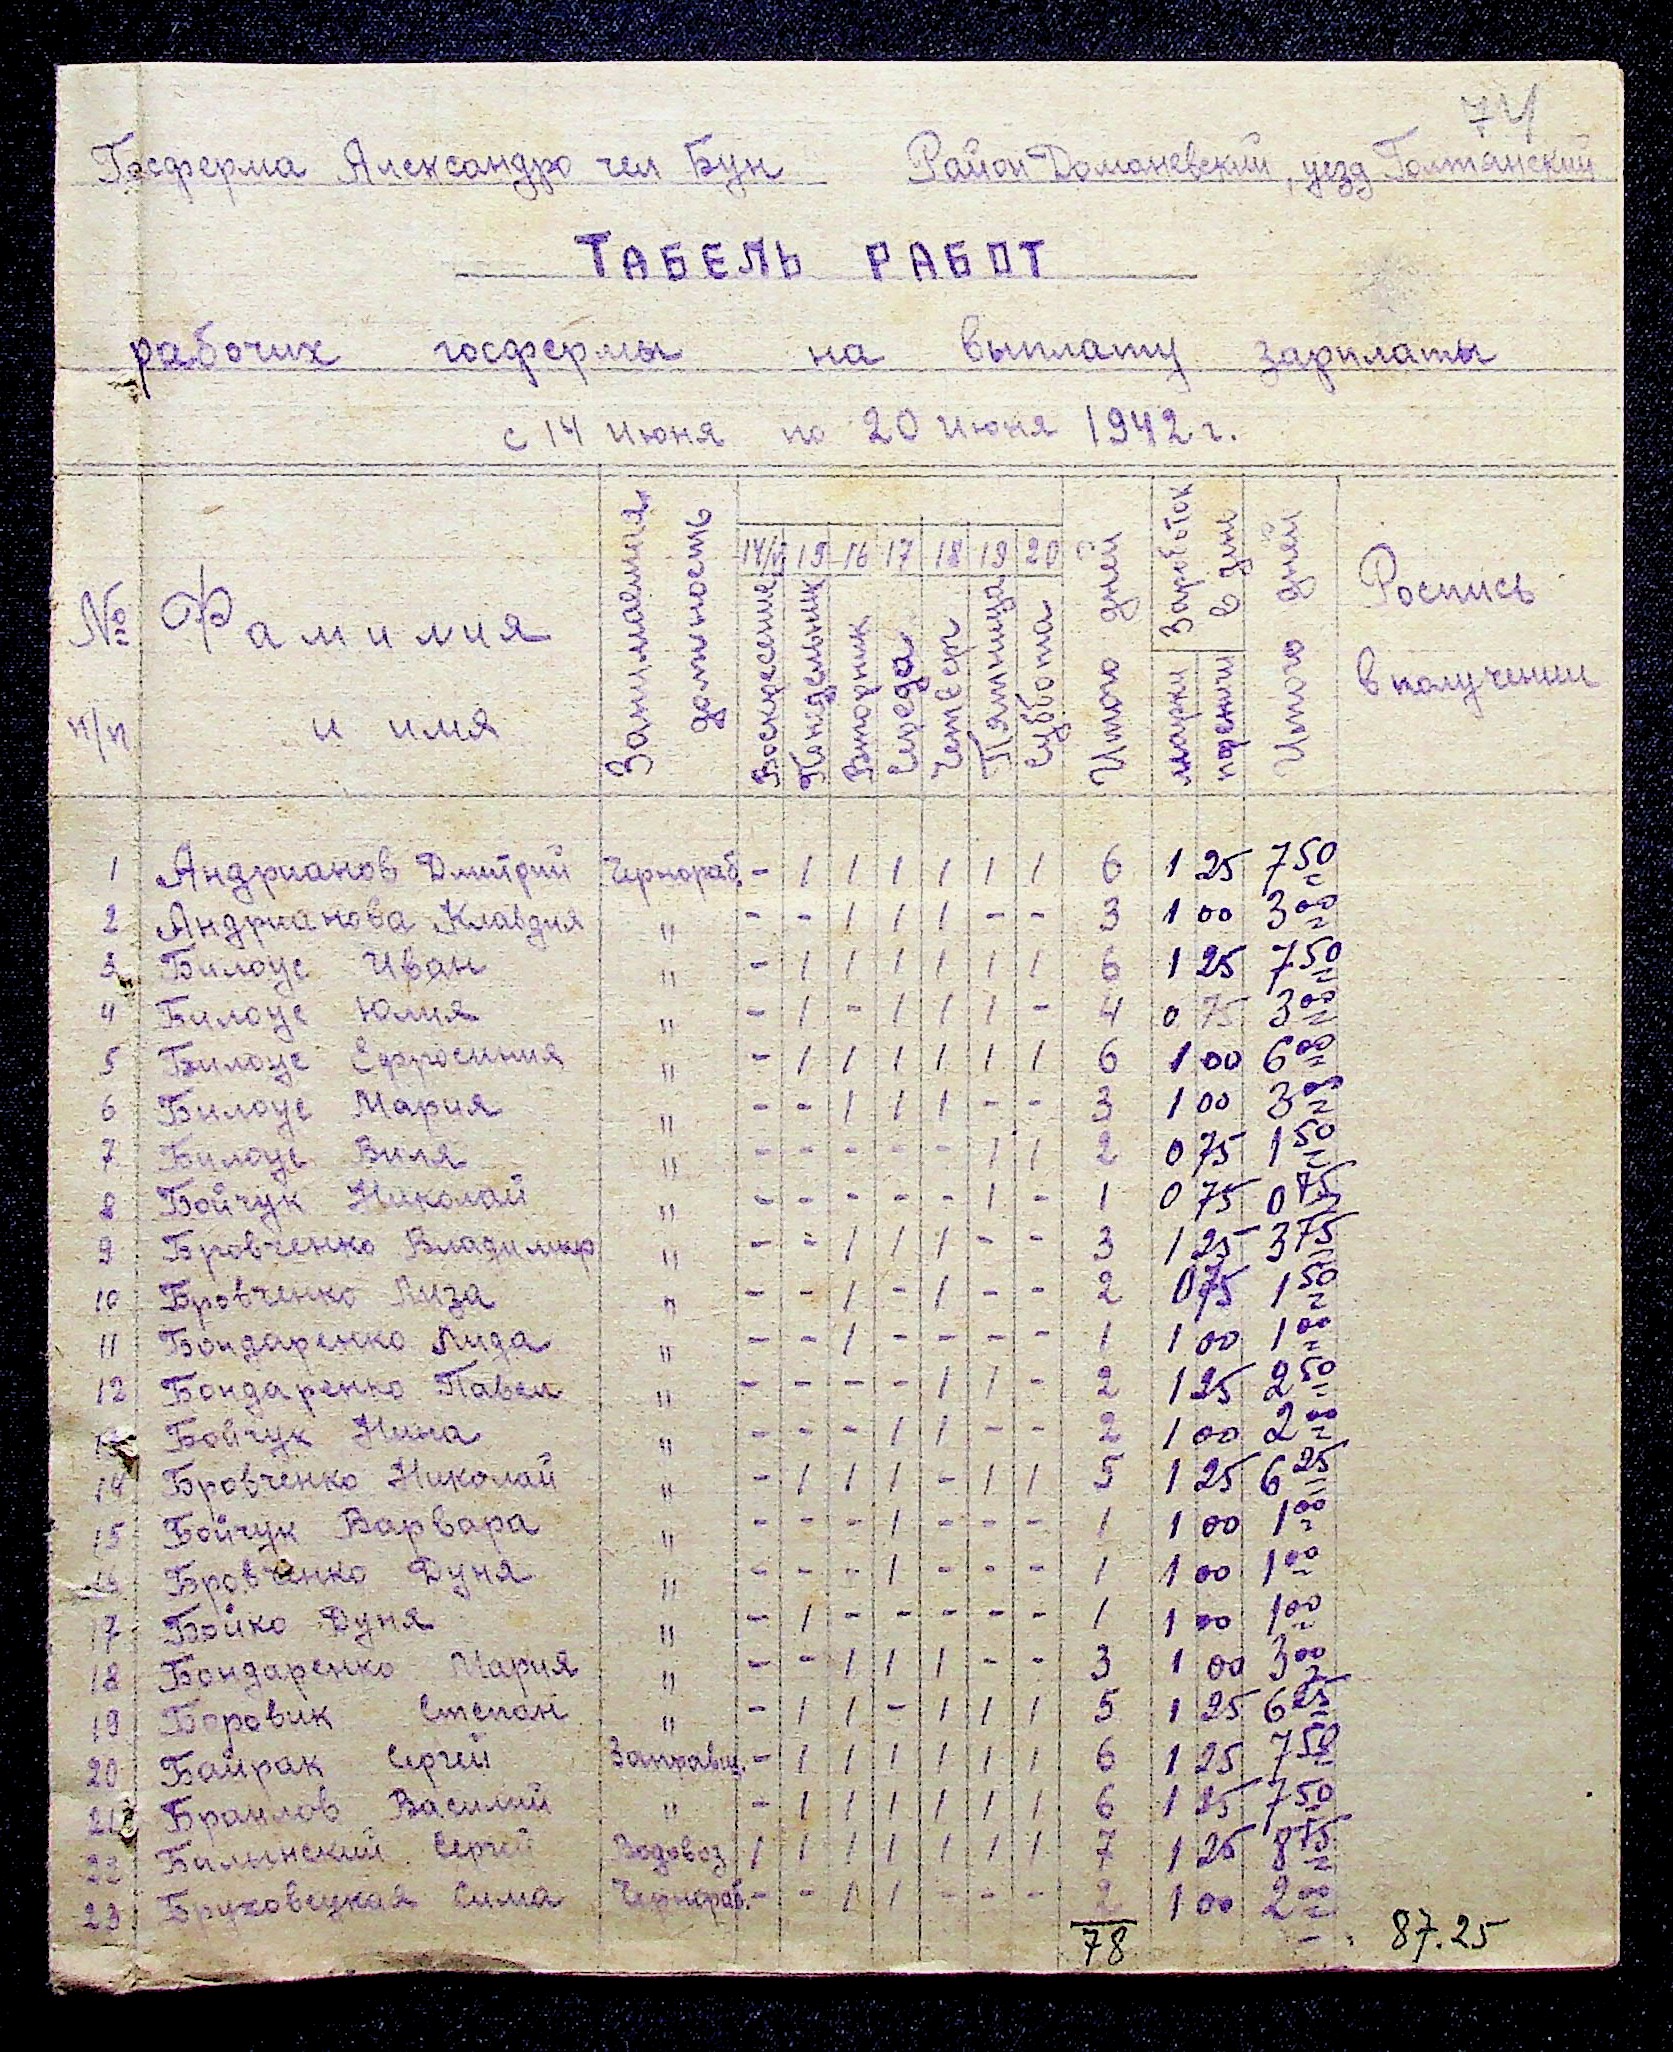 74
Госферма Александро чел Бун Район Доманевский, уезд Голтанский
ТАБЕЛЬ РАБОТ
рабочих госфермы на выплату зарплаты
с 14 июня по 20 июня 1942 г.
№ п/п Фамилия и имя Занимаемая должность 14/VI Воскресение 15 Понедельник 16 Вторник 17 Середа 18 Четверг 19 Пятница 20 Суббота Итого дней Заработок в день марки пфениги Итого дней Роспись в получении
1 Андрианов Дмитрий Чернораб. - / / / / / / 6 1 25 7 50
2 Андрианова Клавдия " - - / / / - - 3 1 00 3 00
3 Билоус Иван " - / / / / / / 6 1 25 7 50
4 Билоус Юлия " - / - / / / - 4 0 75 3 00
5 Билоус Ефросиния " - / / / / / / 6 1 00 6 00
6 Билоус Мария " - - / / / - - 3 1 00 3 00
7 Билоус Виля " - - - - - / / 2 0 75 1 50
8 Бойчук Николай " - - - - - / - 1 0 75 0 75
9 Бровченко Владимир " - - / / / - - 3 1 25 3 75
10 Бровченко Лиза " - - / - / - - 2 0 75 1 50
11 Бондаренко Лида " - - / - - - - 1 1 00 1 00
12 Бондаренко Павел " - - - - / / - 2 1 25 2 50
13 Бойчук Нина " - - - / / - - 2 1 00 2 00
14 Бровченко Николай " - / / / - / / 5 1 25 6 25
15 Бойчук Варвара " - - - / - - - 1 1 00 1 00
16 Бровченко Дуня " - - - / - - - 1 1 00 1 00
17 Бойко Дуня " - / - - - - - 1 1 00 1 00
18 Бондаренко Мария " - - / / / - - 3 1 00 3 00
19 Боровик Степан " - / / - / / / 5 1 25 6 25
20 Байрак Сергей Заправщ. - / / / / / / 6 1 25 7 50
21 Браилов Василий " - / / / / / / 6 1 25 7 50
22 Билынский Сергей Водовоз / / / / / / / 7 1 25 8 75
23 Бруховецкая Сима Чернораб. - - / / - - - 2 1 00 2 00
78 87.25